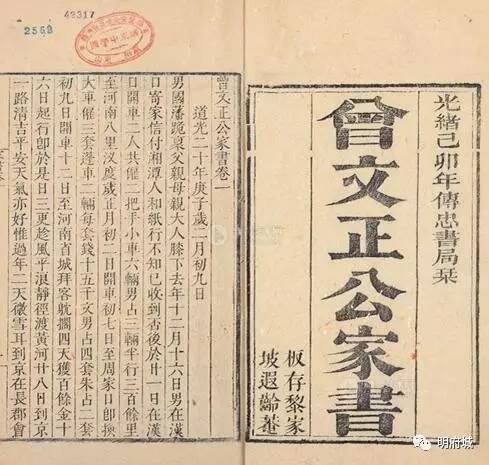 光緒己卯年傳忠書局栞
曾文正公家書
板存黎家
坡遐齡菴
曾文正公家書卷一
道光二十年庚子歲二月初九日
男國藩跪稟父母親大人膝下去年十二月十六日男在漢
口寄家信付湘潭人和紙行不知已收到否後於廿一日在漢
口開車二人共催二把手小車六輛男占三輛半行三百餘里
至河南八里汊度歲正月初二日開車初七日至周家口即換
大車催三套蓬車二輛每套錢十五千文男占四套朱占二套
初九日開車十二日至河南省城拜客躭擱四天獲百餘金十
六日起行即於是日三更趁風平浪靜徑渡黃河廿八日到京
一路清吉平安天氣亦好惟過年二天微雪耳到京在長郡會
42317
2569
明府城